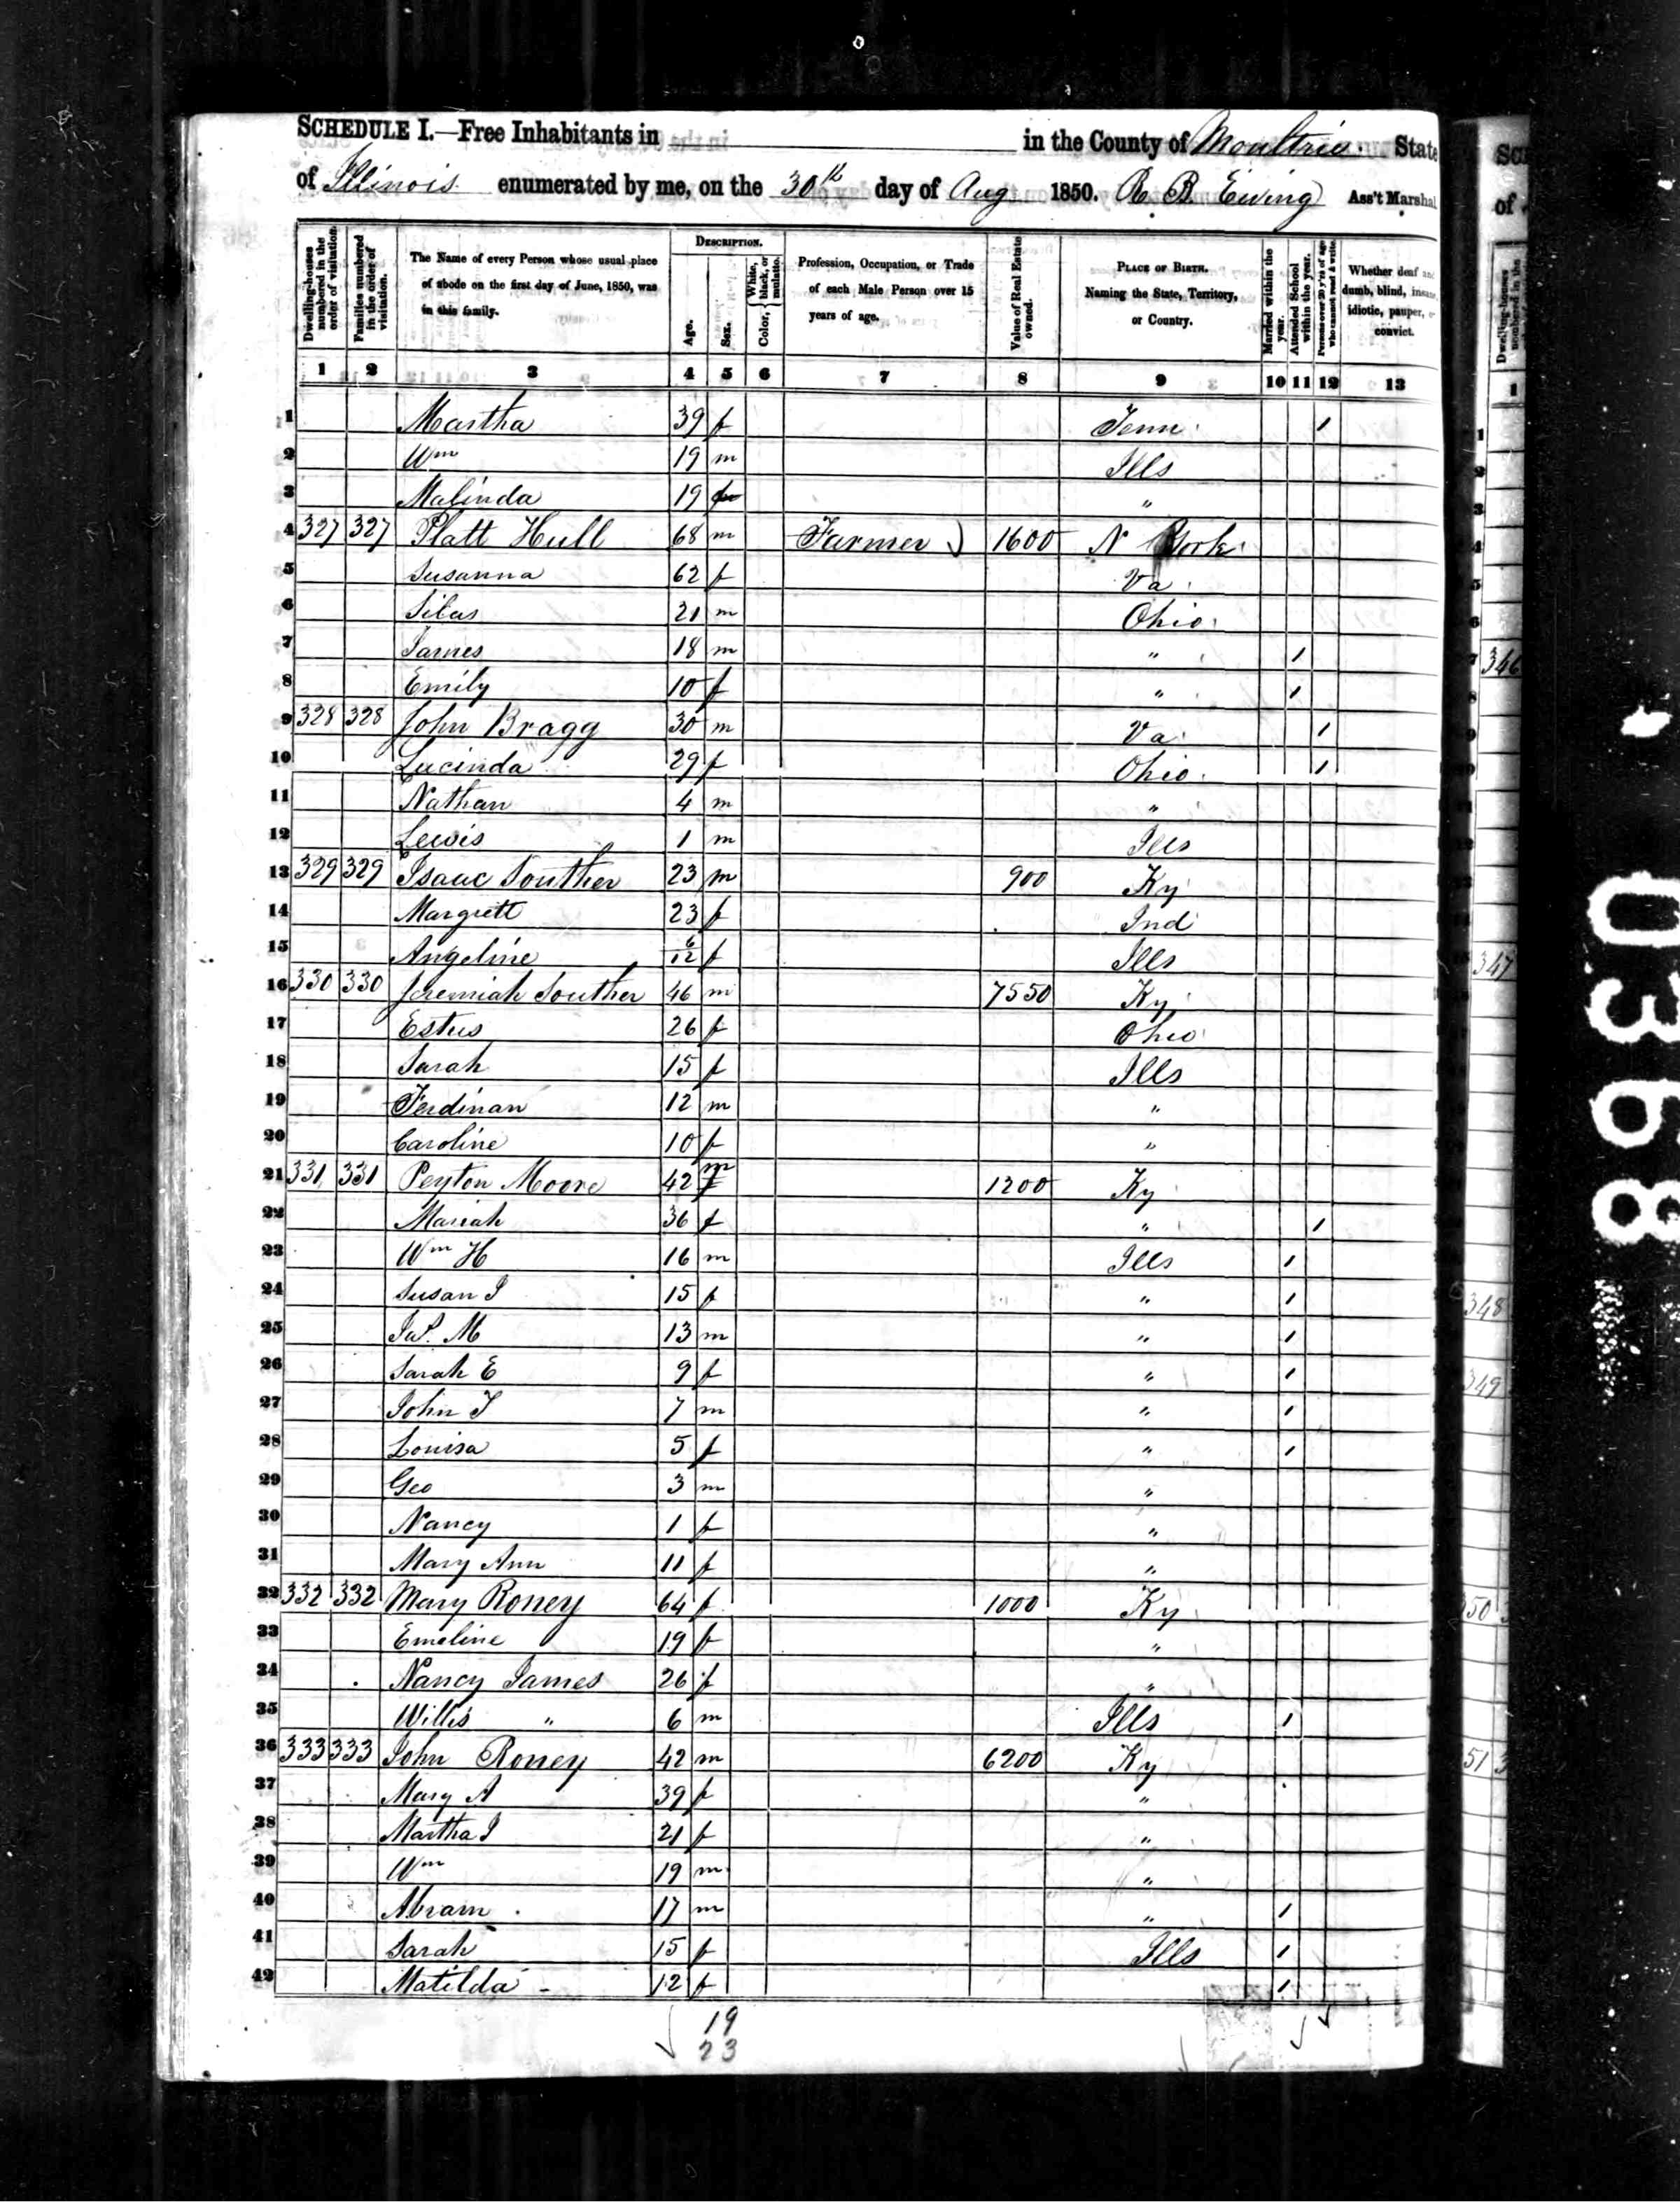 SCHEDULE I.—Free Inhabitants in in the County of Moultrie State
of Illinois enumerated by me, on the 30th day of Aug 1850. R. B. Ewing Ass't Marshal
Dwelling-houses numbered in the order of visitation.
Families numbered in the order of visitation.
The Name of every Person whose usual place of abode on the first day of June, 1850, was in this family.
DESCRIPTION.
Age.
Sex.
Color, { White, black, or mulatto.
Profession, Occupation, or Trade of each Male Person over 15 years of age.
Value of Real Estate owned.
PLACE OF BIRTH. Naming the State, Territory, or Country.
Married within the year.
Attended School within the year.
Persons over 20 y'rs of age who cannot read & write.
Whether deaf and dumb, blind, insane, idiotic, pauper, or convict.
1 2 3 4 5 6 7 8 9 10 11 12 13
1 Martha 39 f Tenn 1
2 Wm 19 m Ills
3 Malinda 19 f "
4 327 327 Platt Hull 68 m Farmer 1600 N York
5 Susanna 62 f Va
6 Silas 21 m Ohio
7 James 18 m " 1
8 Emily 10 f " 1
9 328 328 John Bragg 30 m Va 1
10 Lucinda 29 f Ohio 1
11 Nathan 4 m "
12 Lewis 1 m Ills
13 329 329 Isaac Souther 23 m 900 Ky
14 Margrett 23 f Ind
15 Angeline 6/12 f Ills
16 330 330 Jeremiah Souther 46 m 7550 Ky
17 Estus 26 f Ohio
18 Sarah 15 f Ills
19 Ferdinan 12 m "
20 Caroline 10 f "
21 331 331 Peyton Moore 42 m 1200 Ky
22 Mariah 36 f " 1
23 Wm H 16 m Ills 1
24 Susan J 15 f " 1
25 M 13 m " 1
26 Sarah E 9 f " 1
27 John T 7 m " 1
28 Louisa 5 f " 1
29 Geo 3 m "
30 Nancy 1 f "
31 Mary Ann 11 f "
32 332 332 Mary Roney 64 f 1000 Ky
33 Emeline 19 f "
34 Nancy James 26 f "
35 Willis " 6 m Ills 1
36 333 333 John Roney 42 m 6200 Ky
37 Mary A 39 f "
38 Martha J 21 f "
39 Wm 19 m "
40 Abram 17 m " 1
41 Sarah 15 f Ills 1
42 Matilda 12 f 1
19
23
346
347
348
349
50
51
0368